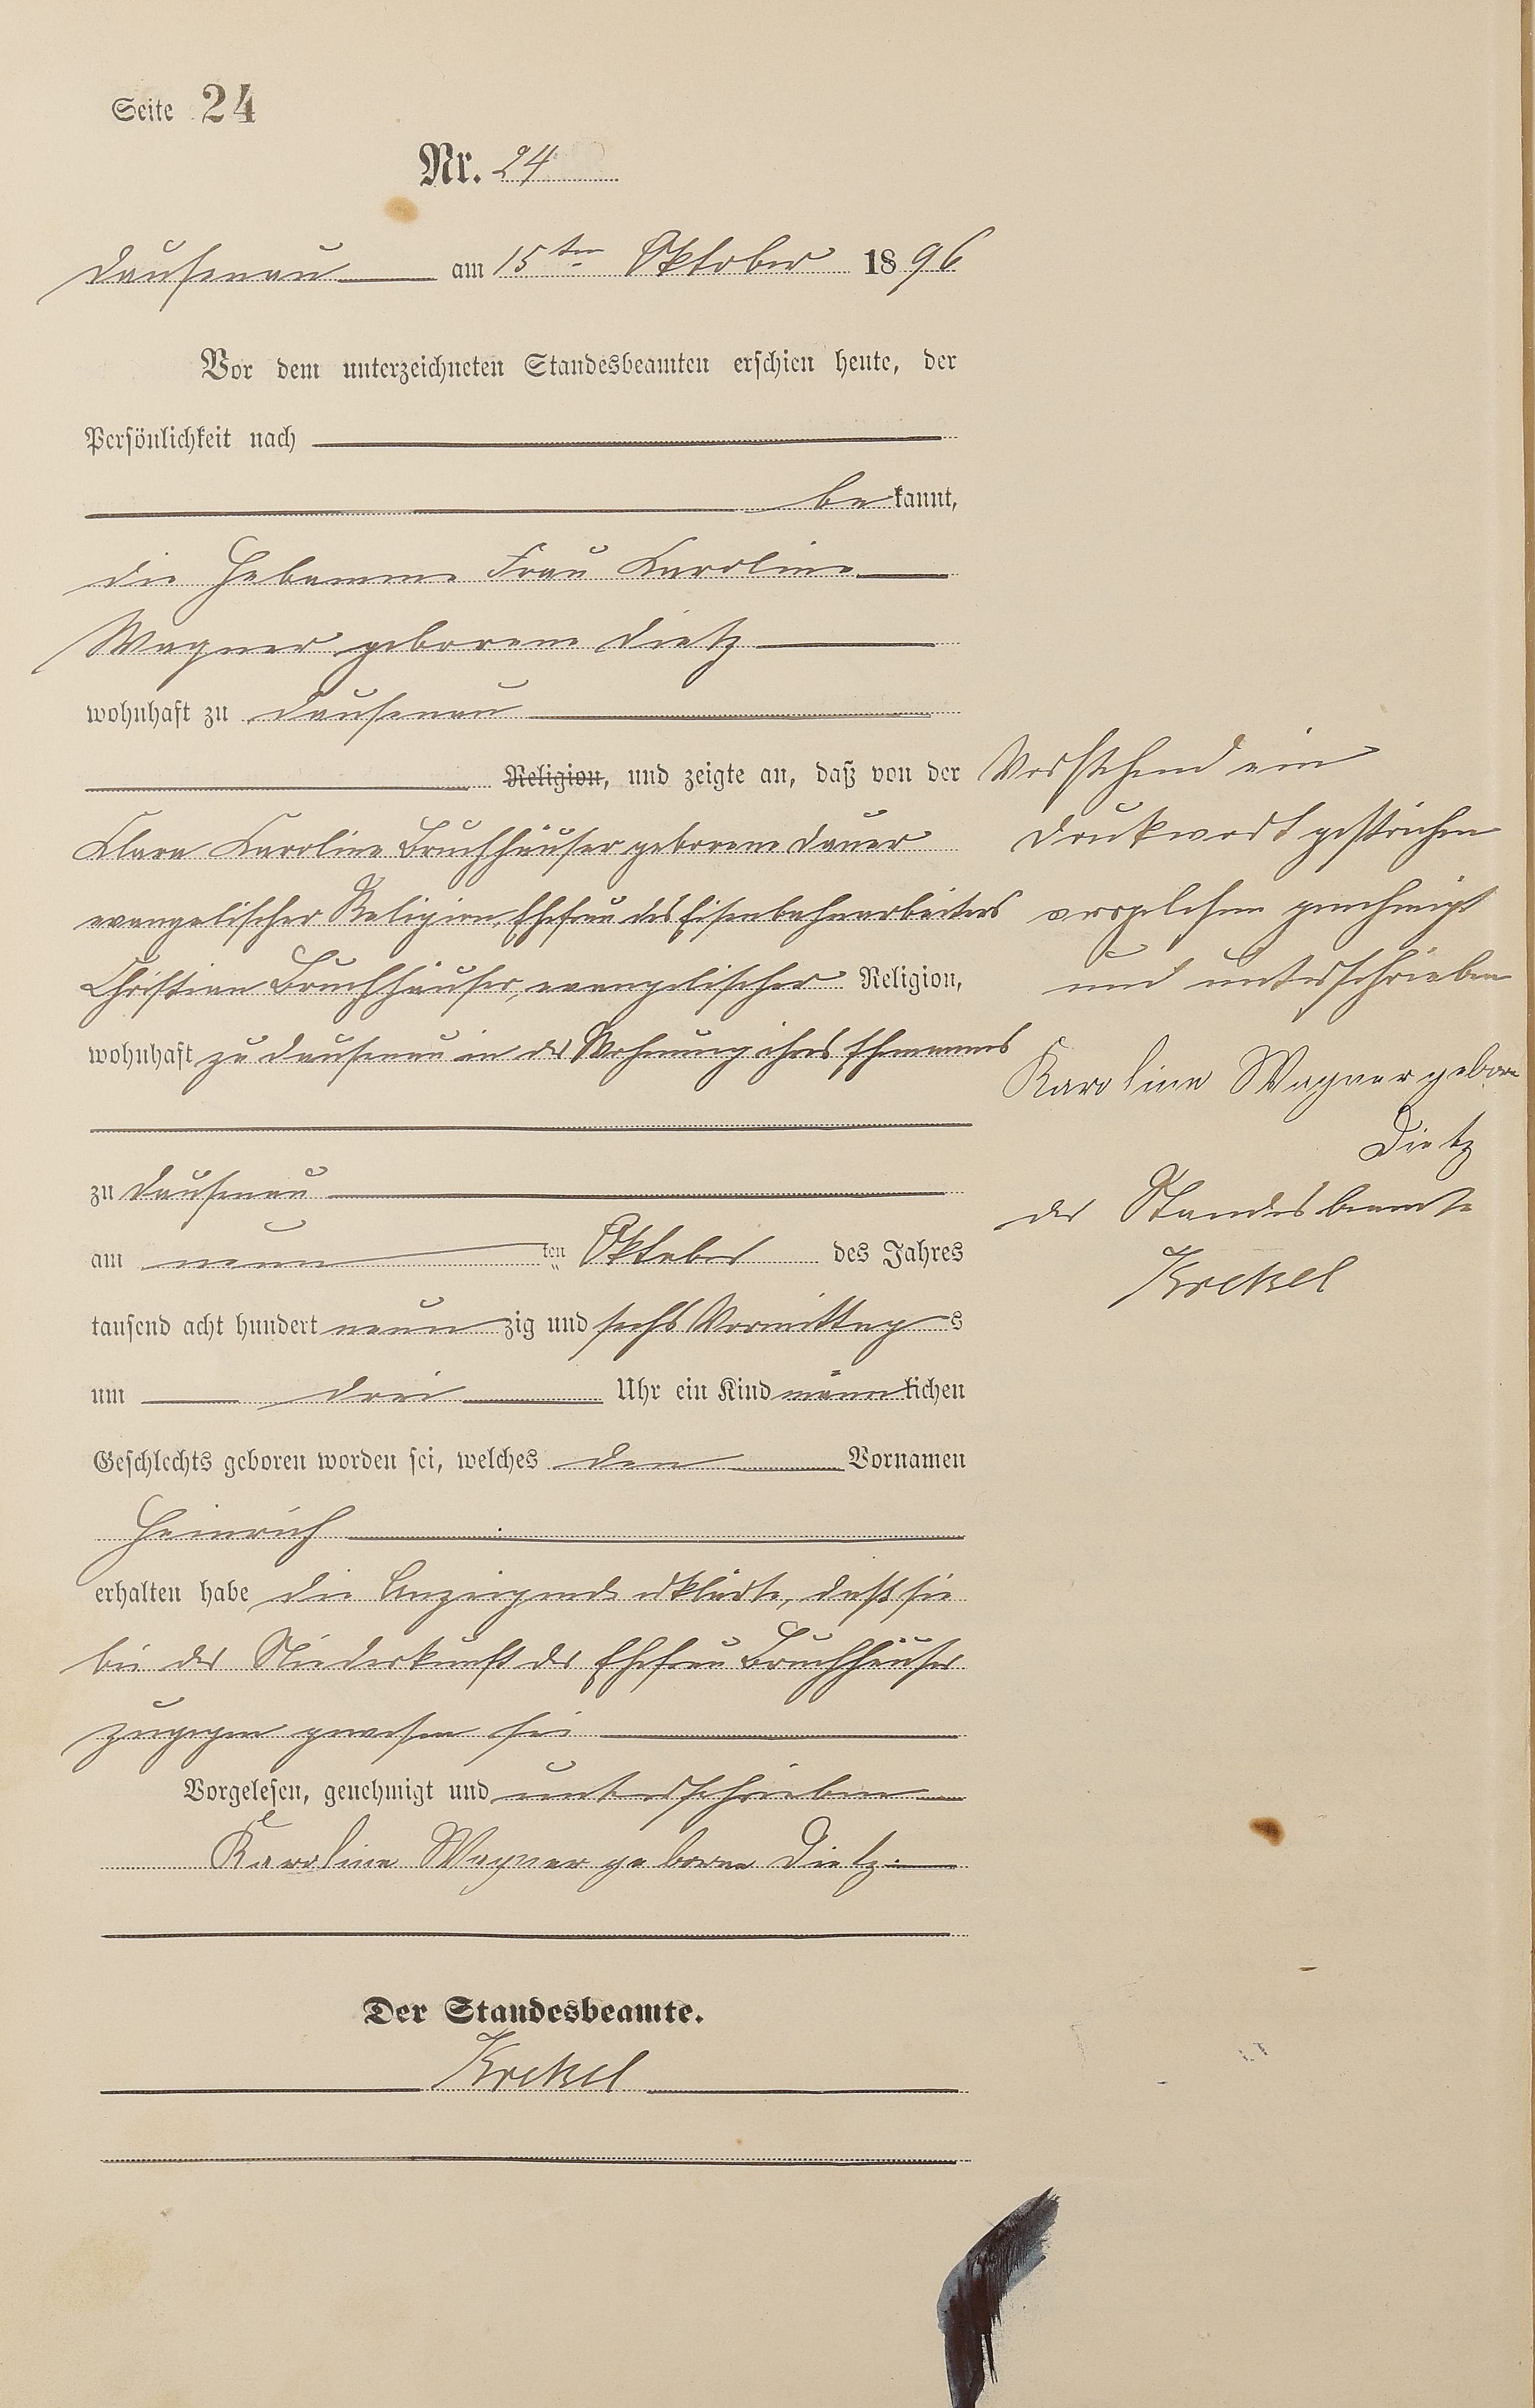 Seite 24
Nr. 24
Dausenau am 15ten Oktober 1896
Vor dem unterzeichneten Standesbeamten erschien heute, der
Persönlichkeit nach
bekannt,
die Hebamme Frau Karoline
Wagner geborene Dietz
wohnhaft zu Dausenau
Religion, und zeigte an, daß von der
Klara Karoline Bruchhäuser geborene Dauer
evangelischer Religion, Ehefrau des Eisenbahnarbeiters
Christian Bruchhäuser, evangelischer Religion,
wohnhaft zu Dausenau in der Wohnung ihres Ehemannes
zu Dausenau
am neunten Oktober des Jahres
tausend acht hundert neunzig und sechs Vormittags
um drei Uhr ein Kind männlichen
Geschlechts geboren worden sei, welches den Vornamen
Heinrich
erhalten habe die Anzeigende erklärte, daß sie
bei der Niederkunft der Ehefrau Bruchhäuser
zugegen gewesen sei
Vorgelesen, genehmigt und unterschrieben
Karoline Wagner geborne Dietz
Der Standesbeamte.
Krekel
Vorstehend ein
Druckwort gestrichen
vorgelesen genehmigt
und unterschrieben
Karoline Wagner geborne
Dietz
der Standesbeamte
Krekel